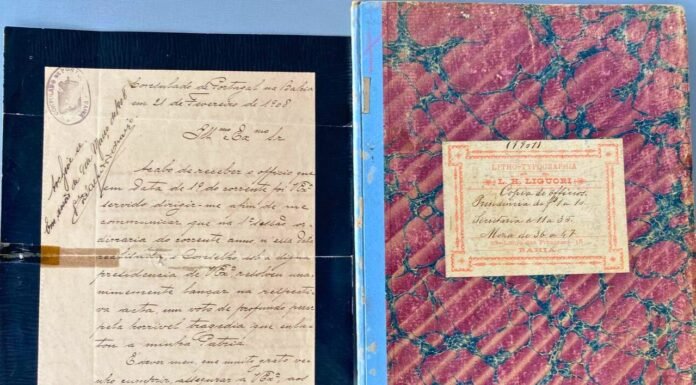 Consulado de Portugal na Bahia
em 21 de Fevereiro de 1908
Illmo Exmo Sr
Acabo de receber o officio que
em data de 1º do corrente foi V Exª
servido dirigir-me afim de me
communicar que na 1ª sessão or-
dinaria do corrente anno
realisada, o Conselho sob a digna
presidencia de V Exª, resolveu una-
nimemente lançar na respecti-
va acta, um voto de profundo pesar
pela horrivel tragedia que enlu-
tou a minha Patria.
É dever meu, e me muito grato ve-
nho cumprir, assegurar a V Exª, aos
(1901)
LITHO-TYPOGRAPHIA
L. R. LIGUORI
Copia de officios.
Presidencia de fs 1 a 10.
Secretaria a 11 a 35.
Mesa de 36 a 47
BAHIA